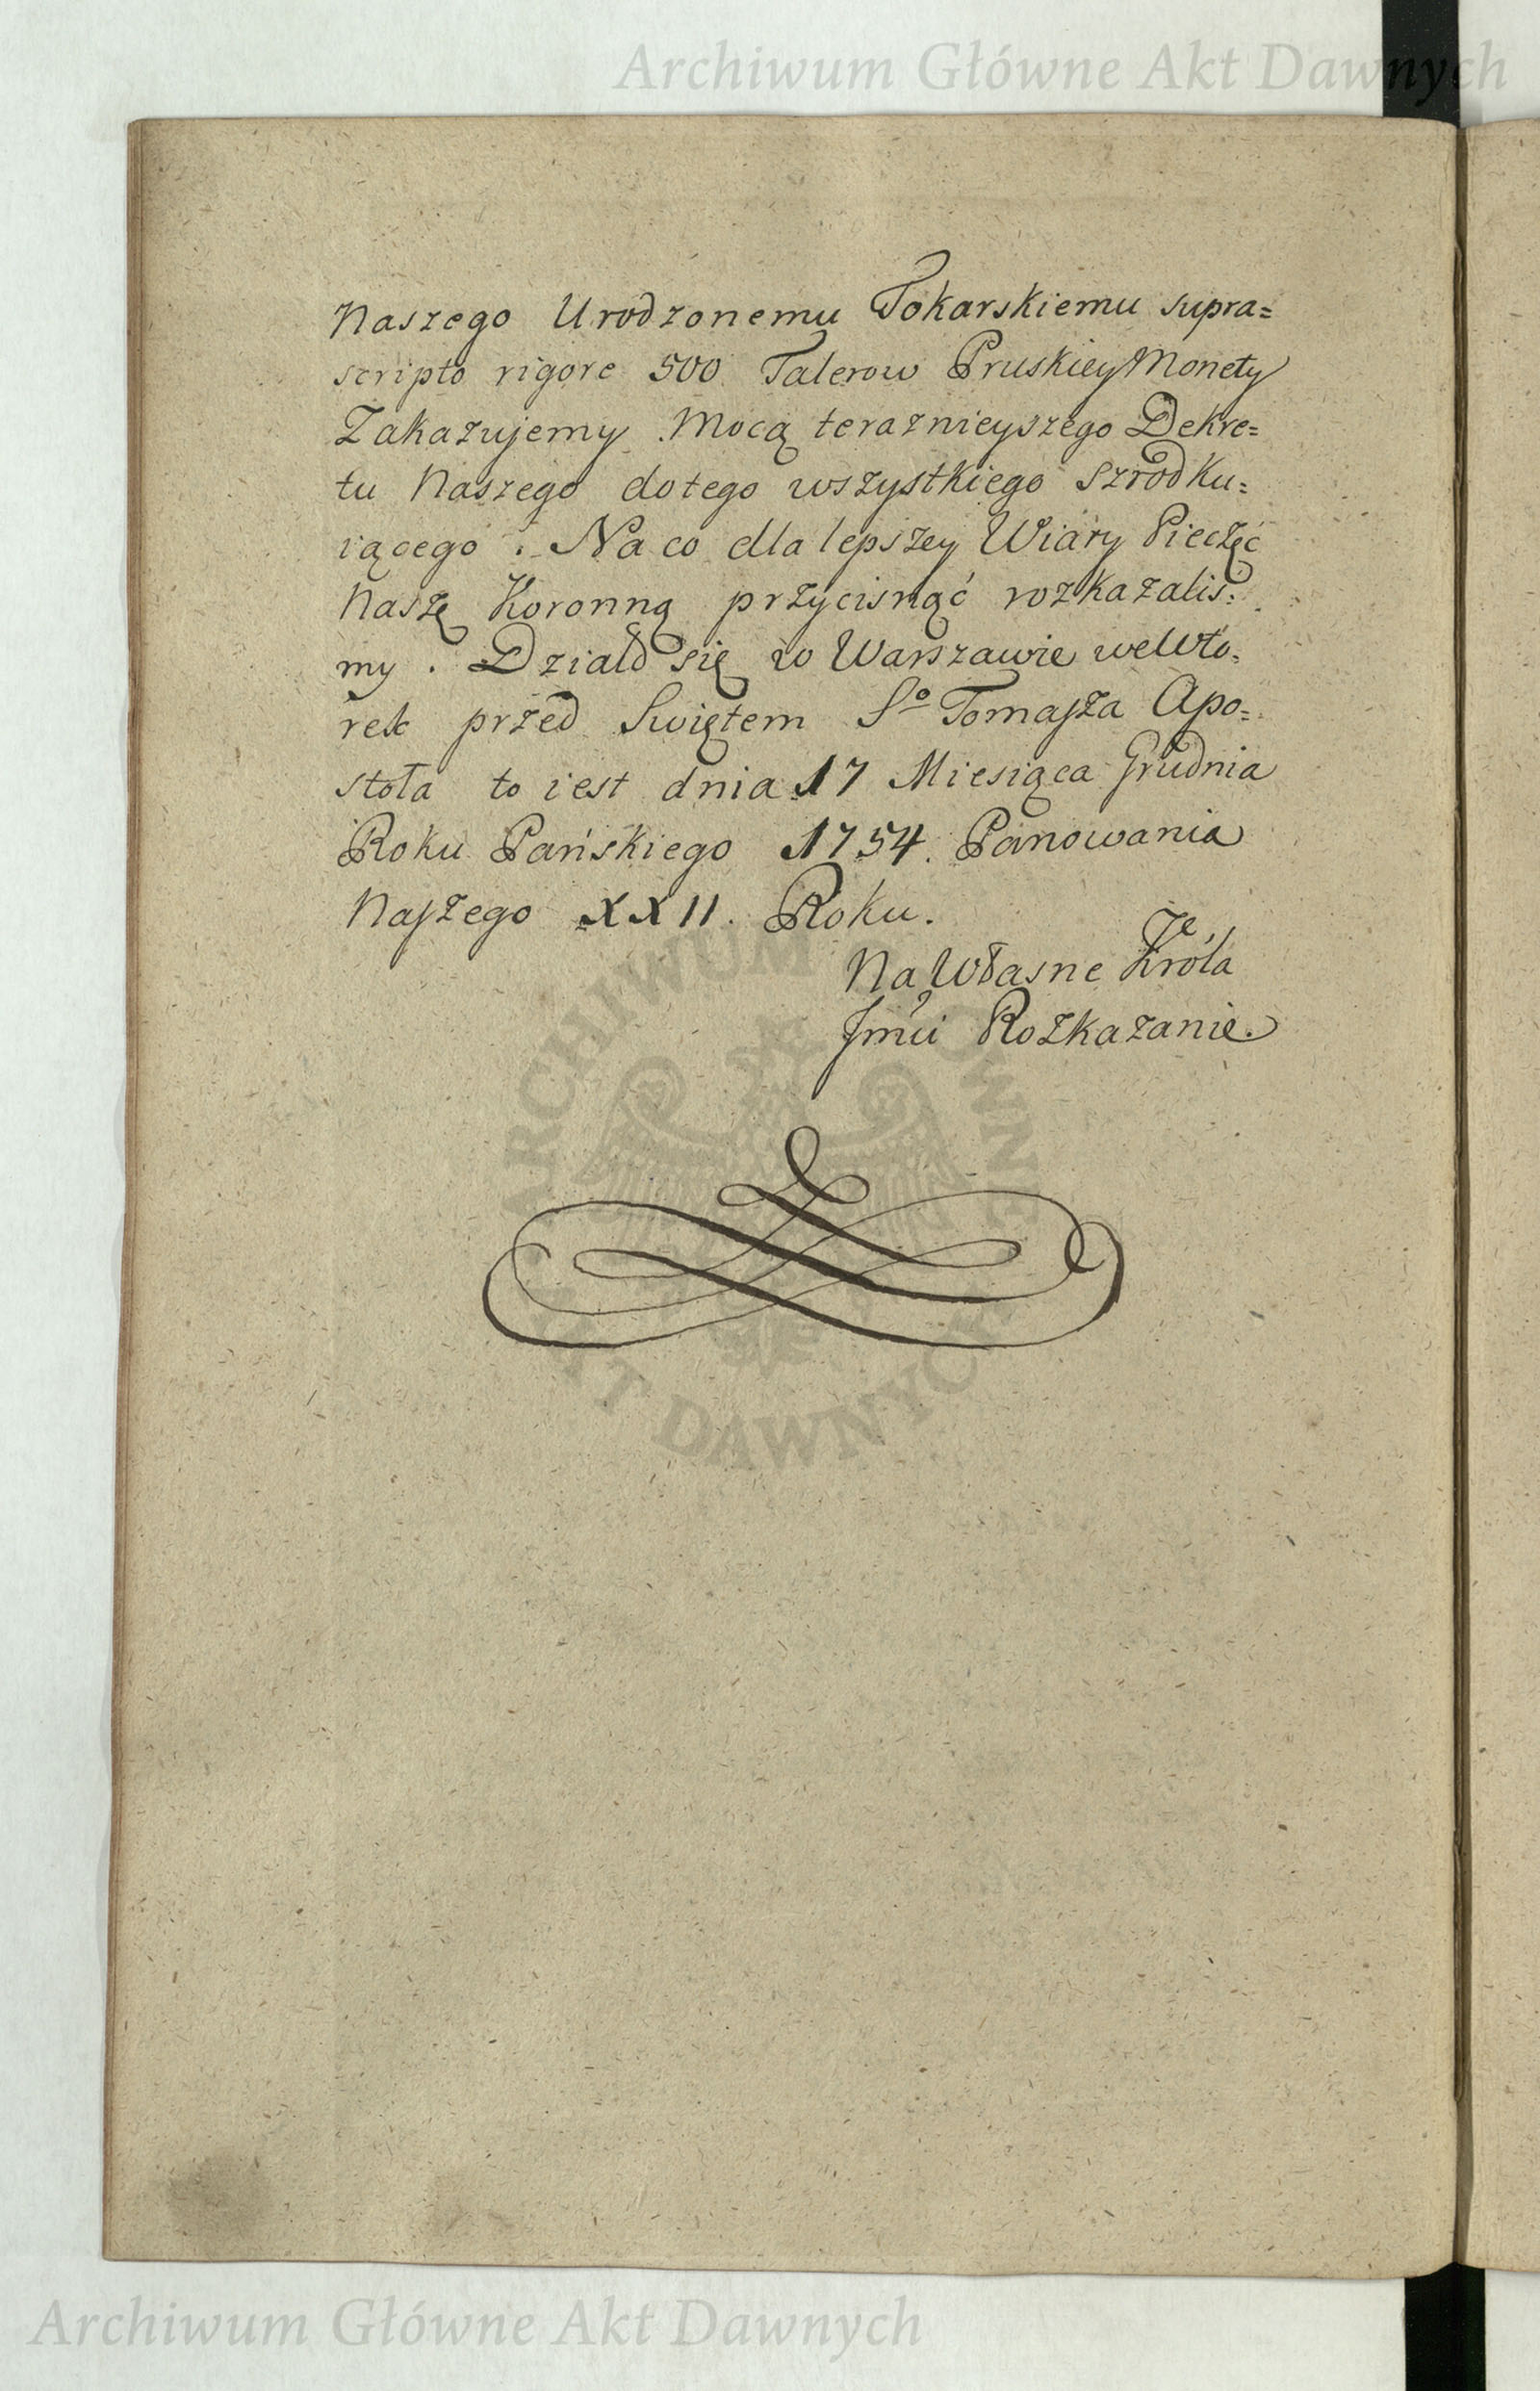 Archiwum Główne Akt Dawnych
Naszego Urodzonemu Tokarskiemu supra=
scripto rigore 500 Talerow Pruskiey Monety
Zakazujemy. Mocą teraznieyszego Dekre=
tu Naszego dotego wszystkiego szrodku=
iącego. Na co dla lepszey Wiary Pieczęć
Naszę Koronną przycisnąć rozkazalis=
my. Działo się w Warszawie we Wto=
rek przed Swiętem So Tomasza Apo=
stoła to iest dnia 17 Miesiąca Grudnia
Roku Pańskiego 1754. Panowania
Naszego XXII. Roku.
Na Własne Króla
Jmci Rozkazanie.
ARCHIWUM GŁÓWNE
AKT DAWNYCH
Archiwum Główne Akt Dawnych